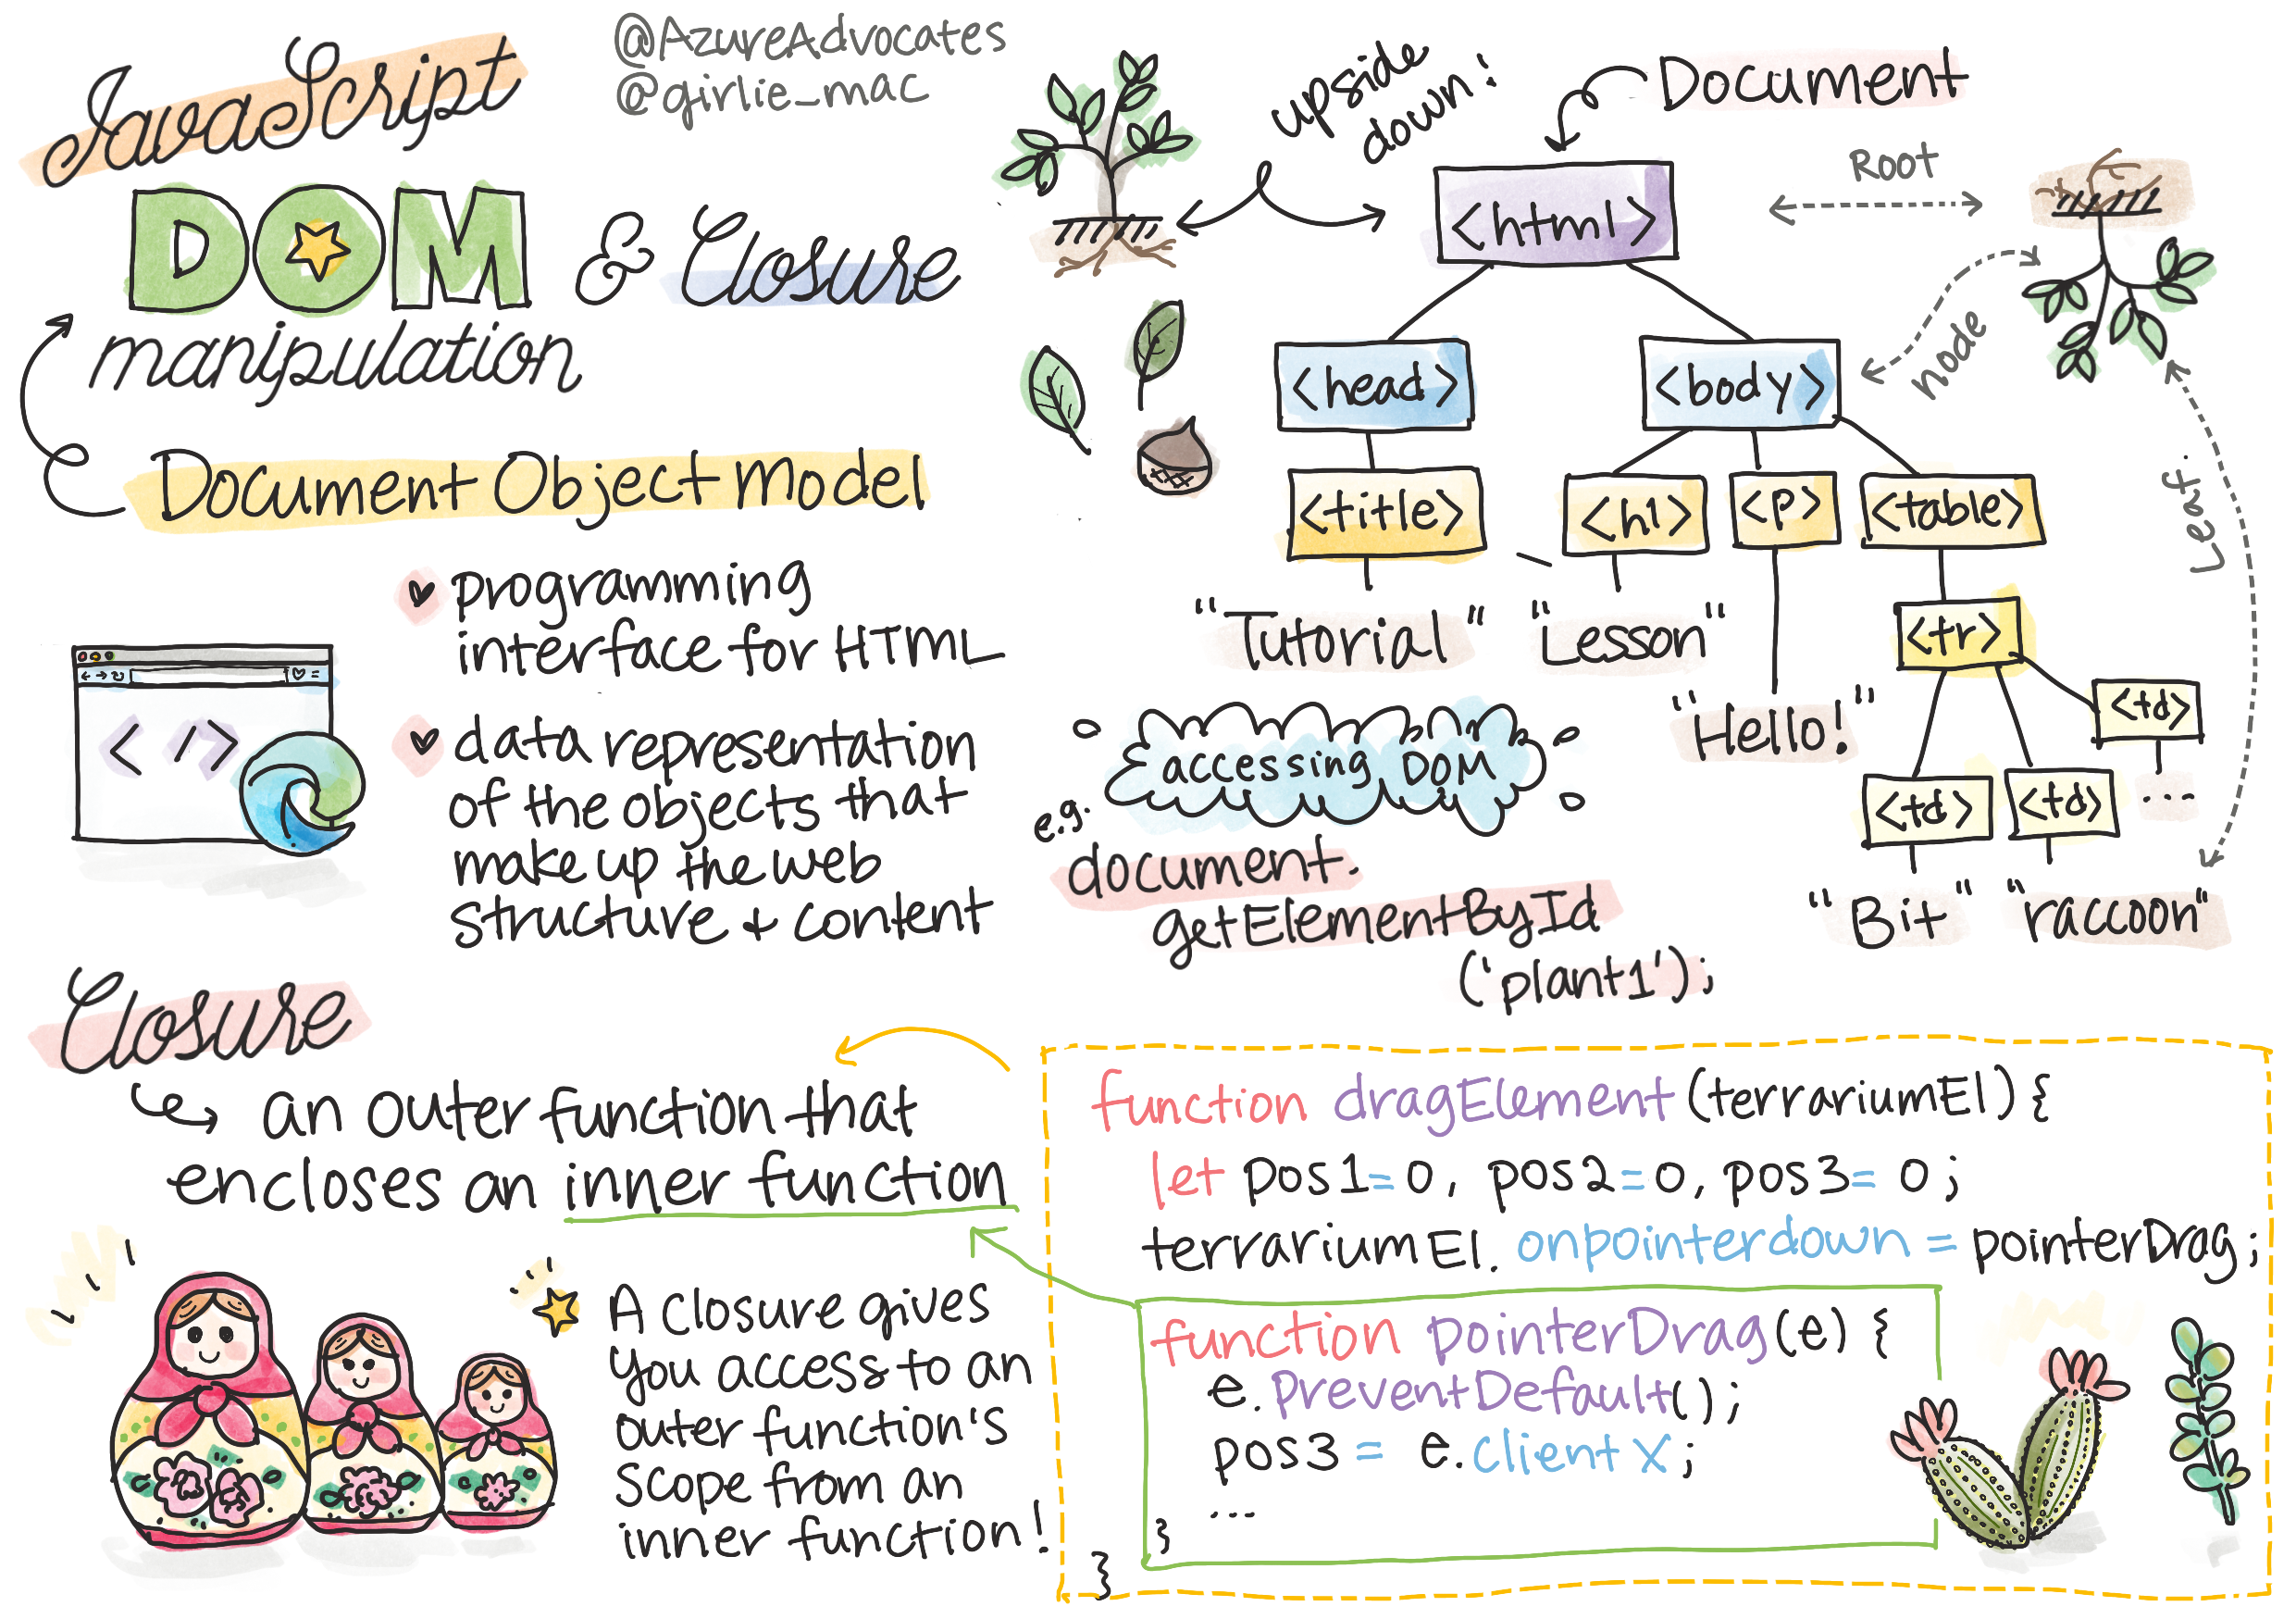 JavaScript
DOM
manipulation
& Closure
@AzureAdvocates
@girlie_mac
Document Object Model
programming
interface for HTML
data representation
of the objects that
make up the web
structure + content
</>
upside
down!
Document
<html>
Root
node
Leaf
<head>
<body>
<title>
<h1>
<p>
<table>
"Tutorial"
"Lesson"
"Hello!"
<tr>
<td>
<td>
<td>
...
"Bit"
"raccoon"
accessing DOM
e.g.
document.
getElementById
('plant1');
Closure
an outer function that
encloses an inner function
A closure gives
you access to an
outer function's
scope from an
inner function!
function dragElement (terrariumEl) {
let pos1=0, pos2=0, pos3= 0;
terrariumEl. onpointerdown = pointerDrag;
function pointerDrag(e) {
e.preventDefault();
pos3 = e.client X;
...
}
}